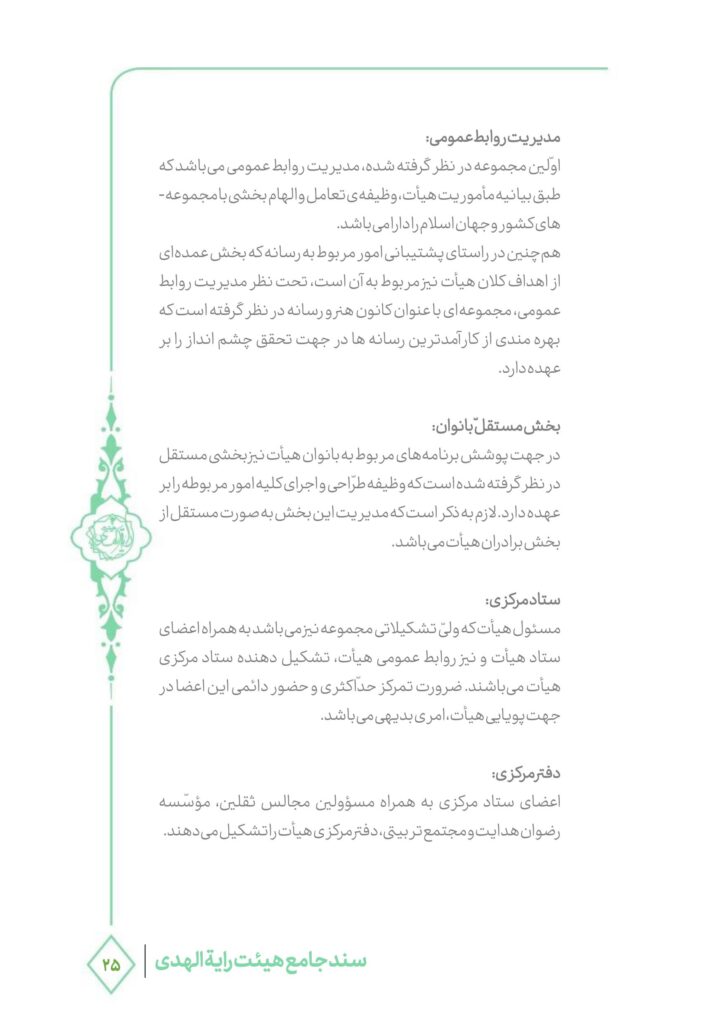 مدیریت روابط عمومی:
اوّلین مجموعه در نظر گرفته شده، مدیریت روابط عمومی می‌باشد که
طبق بیانیه مأموریت هیأت، وظیفه‌ی تعامل و الهام بخشی با مجموعه-
های کشور و جهان اسلام را دارا می‌باشد.
هم‌چنین در راستای پشتیبانی امور مربوط به رسانه که بخش عمده‌ای
از اهداف کلان هیأت نیز مربوط به آن است، تحت نظر مدیریت روابط
عمومی، مجموعه‌ای با عنوان کانون هنر و رسانه در نظر گرفته است که
بهره مندی از کارآمدترین رسانه ها در جهت تحقق چشم انداز را بر
عهده دارد.
بخش مستقلّ بانوان:
در جهت پوشش برنامه‌های مربوط به بانوان هیأت نیز بخشی مستقل
در نظر گرفته شده است که وظیفه طرّاحی و اجرای کلیه امور مربوطه را بر
عهده دارد. لازم به ذکر است که مدیریت این بخش به صورت مستقل از
بخش برادران هیأت می‌باشد.
ستاد مرکزی:
مسئول هیأت که ولیّ تشکیلاتی مجموعه نیز می‌باشد به همراه اعضای
ستاد هیأت و نیز روابط عمومی هیأت، تشکیل دهنده ستاد مرکزی
هیأت می‌باشند. ضرورت تمرکز حدّاکثری و حضور دائمی این اعضا در
جهت پویایی هیأت، امری بدیهی می‌باشد.
دفتر مرکزی:
اعضای ستاد مرکزی به همراه مسؤولین مجالس ثقلین، مؤسّسه
رضوان هدایت و مجتمع تربیتی، دفتر مرکزی هیأت را تشکیل می‌دهند.
سند جامع هیئت رایة الهدی
۲۵